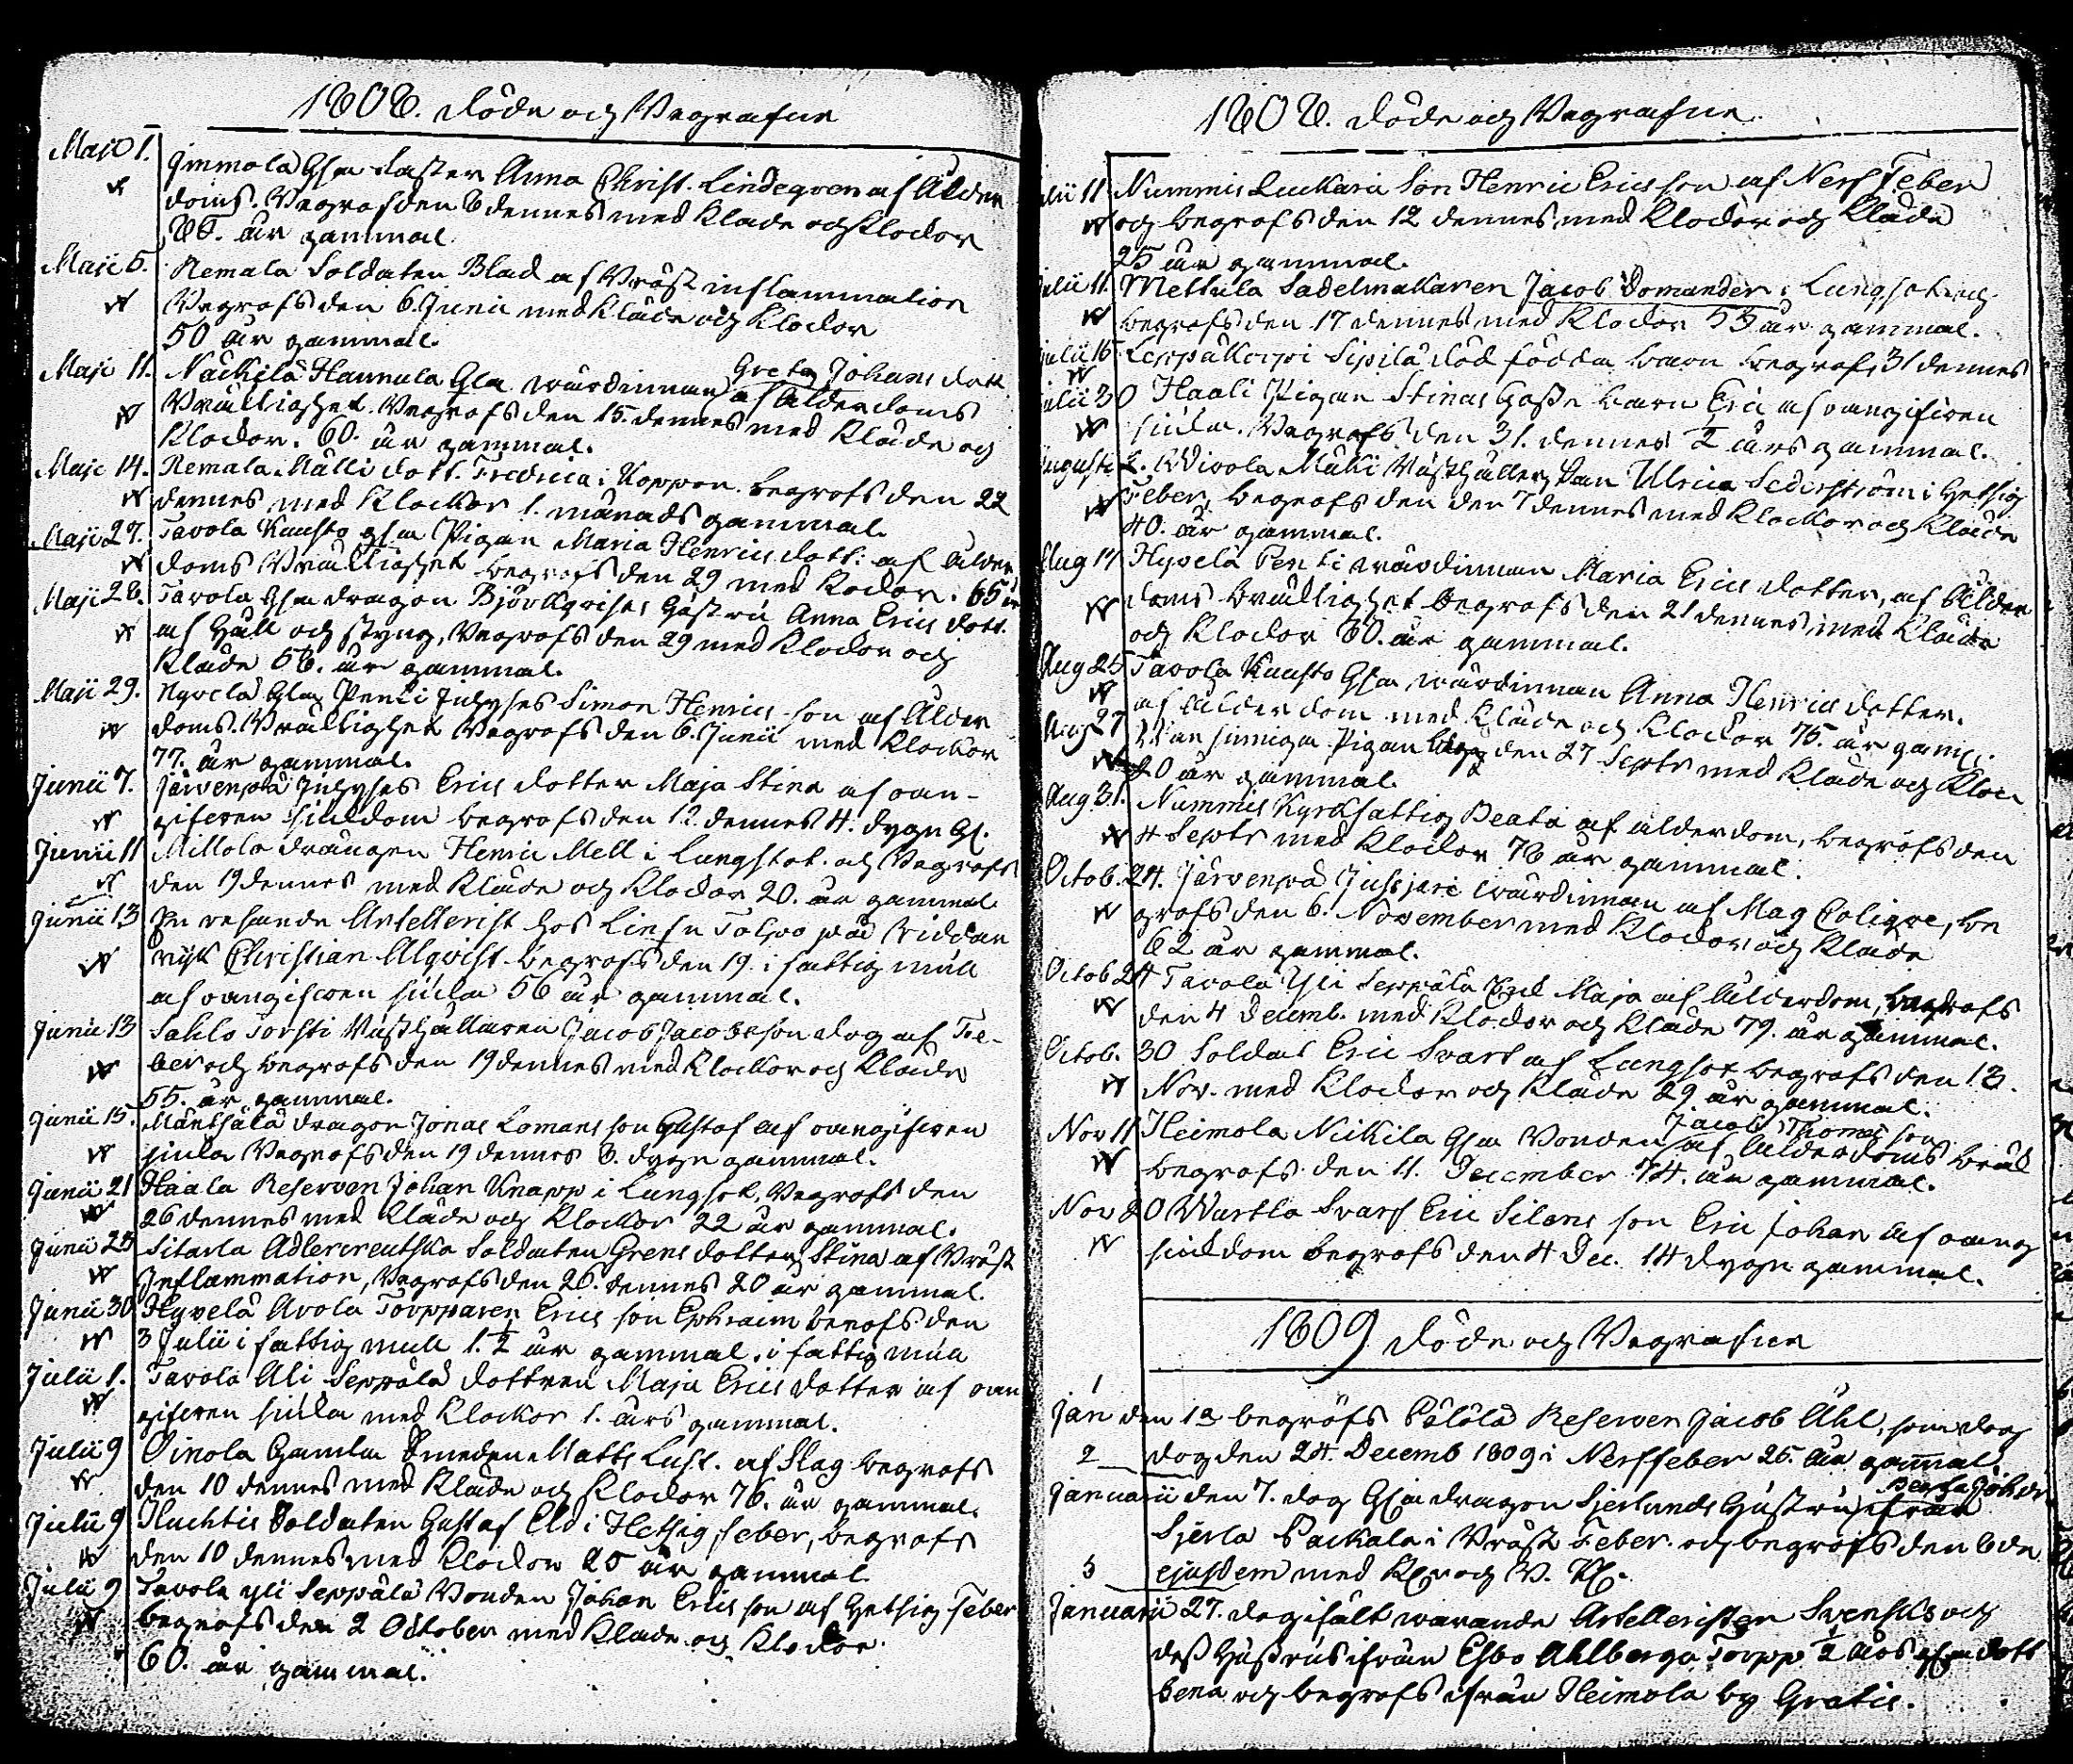 1808. Döde och Begrafne
Maji 1. Jmmola Gla Faster Anna Christ. Lindegren af Ålder
doms. Begrofs den 8 dennes med Kläde och Klockor
86. år gammal.
Maji 5. Remala Soldaten Blad af Bröst inflammation
Begrofs den 6. Junii med Kläde och Klockor
50 år gammal.
Maji 11. Näckilä Hannula Gla wärdinnan Greta Johans dott. af ålderdoms
Bräcklighet. Begrofs den 15. dennes med Kläde och
Klockor. 60. år gammal.
Maji 14. Remala Mälli dott. Fredrica i Koppor. begrofs den 22
dennes med Klockor 1. månads gammal.
Maji 27. Tavola Knusto gla Pigan Maria Henrics dott: af ålder
doms Bräcklighet begrofs den 29 med Kockor. 65 år
Maji 28. Tavola Gla dragon Björkqvists Hustru Anna Erics dott.
af Håll och styng, Begrofs den 29 med Klockor och
Kläde 58. år gammal.
Maji 29. Hyvelä Gla Penti Inhyses Simon Henrics son af Ålder
doms. Bräcklighet Begrofs den 6. Junii med Klockor
77. år gammal.
Junii 7. Järvenpä Inhyses Erics dotter Maja Stina af oan-
gifven siukdom begrofs den 12. dennes 4. dygn Gl.
Junii 11 Millola drängen Henric Mell i Lungsot. och Begrofs
den 19 dennes med Kläde och Klockor 20. år gammal
Junii 13 En resande Artellerist hos på Riddar
nijk Christian Alqvist begrofs den 19. i fattig mull
af oangifven siuka 56 år gammal.
Junii 13 Sahlo Torsti Bushållaren Jacob Jacobsson dog af Fe-
ber och begrofs den 19 dennes med Klockor och Kläde
55. år gammal.
Junii 15. Mäntsälä dragon Jonas Lomans son Gustaf af oangifven
siuka Begrofs den 19 dennes 8. dygn gammal.
Junii 21 Haala Reserven Johan Knapp i Lungsot, Begrofs den
26 dennes med Kläde och Klockor 22 år gammal.
Junii 25 Sitarla Adlercreutska Soldaten Grens dotter Stina af Bröst
Inflammation, Begrofs den 26. dennes 20 år gammal.
Junii 30 Hyvelä Avola Torpparen Erics son Ephraim berofs den
3 Julii i fattig mull 1. ½ år gammal. i fattig mull
Julii 1. Tavola Ali Seppälä dottren Maja Erics dotter af oan
gifven siuka med Klockor 1. års gammal.
Julii 9 Oinola Gamla Smeden Matts Lust. af Slag begrofs
den 10 dennes med Kläde och Klockor 76. år gammal.
Julii 9 Huchtis Soldaten Gustaf Eld i Hetsig feber, begrofs
den 10 dennes med Klockor 25 år gammal
Julii 9 Tavola yli Seppälä Bonden Johan Erics son af Hetsig feber
begrofs den 2 October med Kläde och Klockor
60. år gammal.
1808. Döde och Begrafne.
Julii 11 Nummis Luckari Son Henric Ericsson af Nerf Feber
och begrofs den 12 dennes med Klockor och Kläde
25 år gammal.
Julii 11. Mettula Sadelmakaren Jacob Domander i Lungsot och
begrofs den 17 dennes med Klockor 53 år gammal.
Julii 16 Leppäkorpi Sipilä död födda barn begrofs 31 dennes
Julii 30 Haali Pigan Stinas Gosse barn Eric af oangifven
siuka. Begrofs den 31. dennes ½ års gammal.
Augusti 2. Wivola Mäki Bushållerskan Ulrica Sederström i Hetsig
feber, begrofs den den 7 dennes med Klockor och Kläde
40. år gammal.
Aug 17 Hyvelä Penti wärdinnan Maria Erics dotter, af Ålder
doms bräcklighet begrofs den 21 dennes med Kläde
och Klockor 80. år gammal.
Aug 25 Tavola Knusto Gla wärdinnan Anna Henrics dotter.
af ålderdom med Kläde och Klockor 75. år gaml.
Aug 27 Pigan den 27 Septr med Kläde och Kloc
20 år gammal.
Aug. 31. Nummis Kyrkfattig Beata af ålderdom, begrofs den
4 Septr med Klockor 78 år gammal.
Octob. 24. Järvenpä Jussjari wärdinnan af Mag Colique, be
grofs den 6. November med Klockor och Kläde
62 år gammal.
Octob 24 Tavola Yli Seppälä Maja af ålderdom, begrofs
den 4 Decemb. med Klockor och Kläde 79. år gammal.
Octob. 30 Soldat Eric Svart af Lungsot begrofs den 13.
Nov. med Klockor och Kläde 29 år gammal.
Nov 11 Heimola Nickila Gla Bonden Jacob Thomas son af ålderdoms bräck
begrofs den 11. December 74. år gammal.
Nov 20 Wartla Svarf Eric Silens son Eric Johan af oang
siukdom begrofs den 4 Dec. 14 dygn gammal.
1809 Döde och Begrafne
1
Jan den 1a begrofs Pälölä Reserven Jacob Ahl, som dog
2 dog den 24. Decemb 1809 i Nerffeber 25. år gammal
Januarii den 7. dog Gla dragon Sjerlunds Hustru ifrån
Sjerla Packala i Bröst Feber. och begrofs den 8de
3 ejusdem med Klr och B. Kl.
Januarii 27. dog i fält warande Artelleristen Svensks och
dess Hustrus ifrån Esbo Ahlberga Torpp ½ års gla dott
Lena och begrofs ifrån Heimola by Gratis.